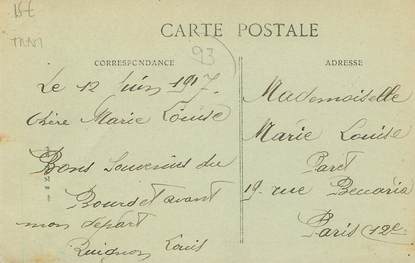 15€
TRAM
93
CARTE POSTALE
CORRESPONDANCE
Le 12 Juin 1917.
Chère Marie Louise
Bons Souvenirs du
Bourget avant
mon depart
Quignon Louis
ADRESSE
Mademoiselle
Marie Louise
Paret
19 rue Beccaria
Paris 12e